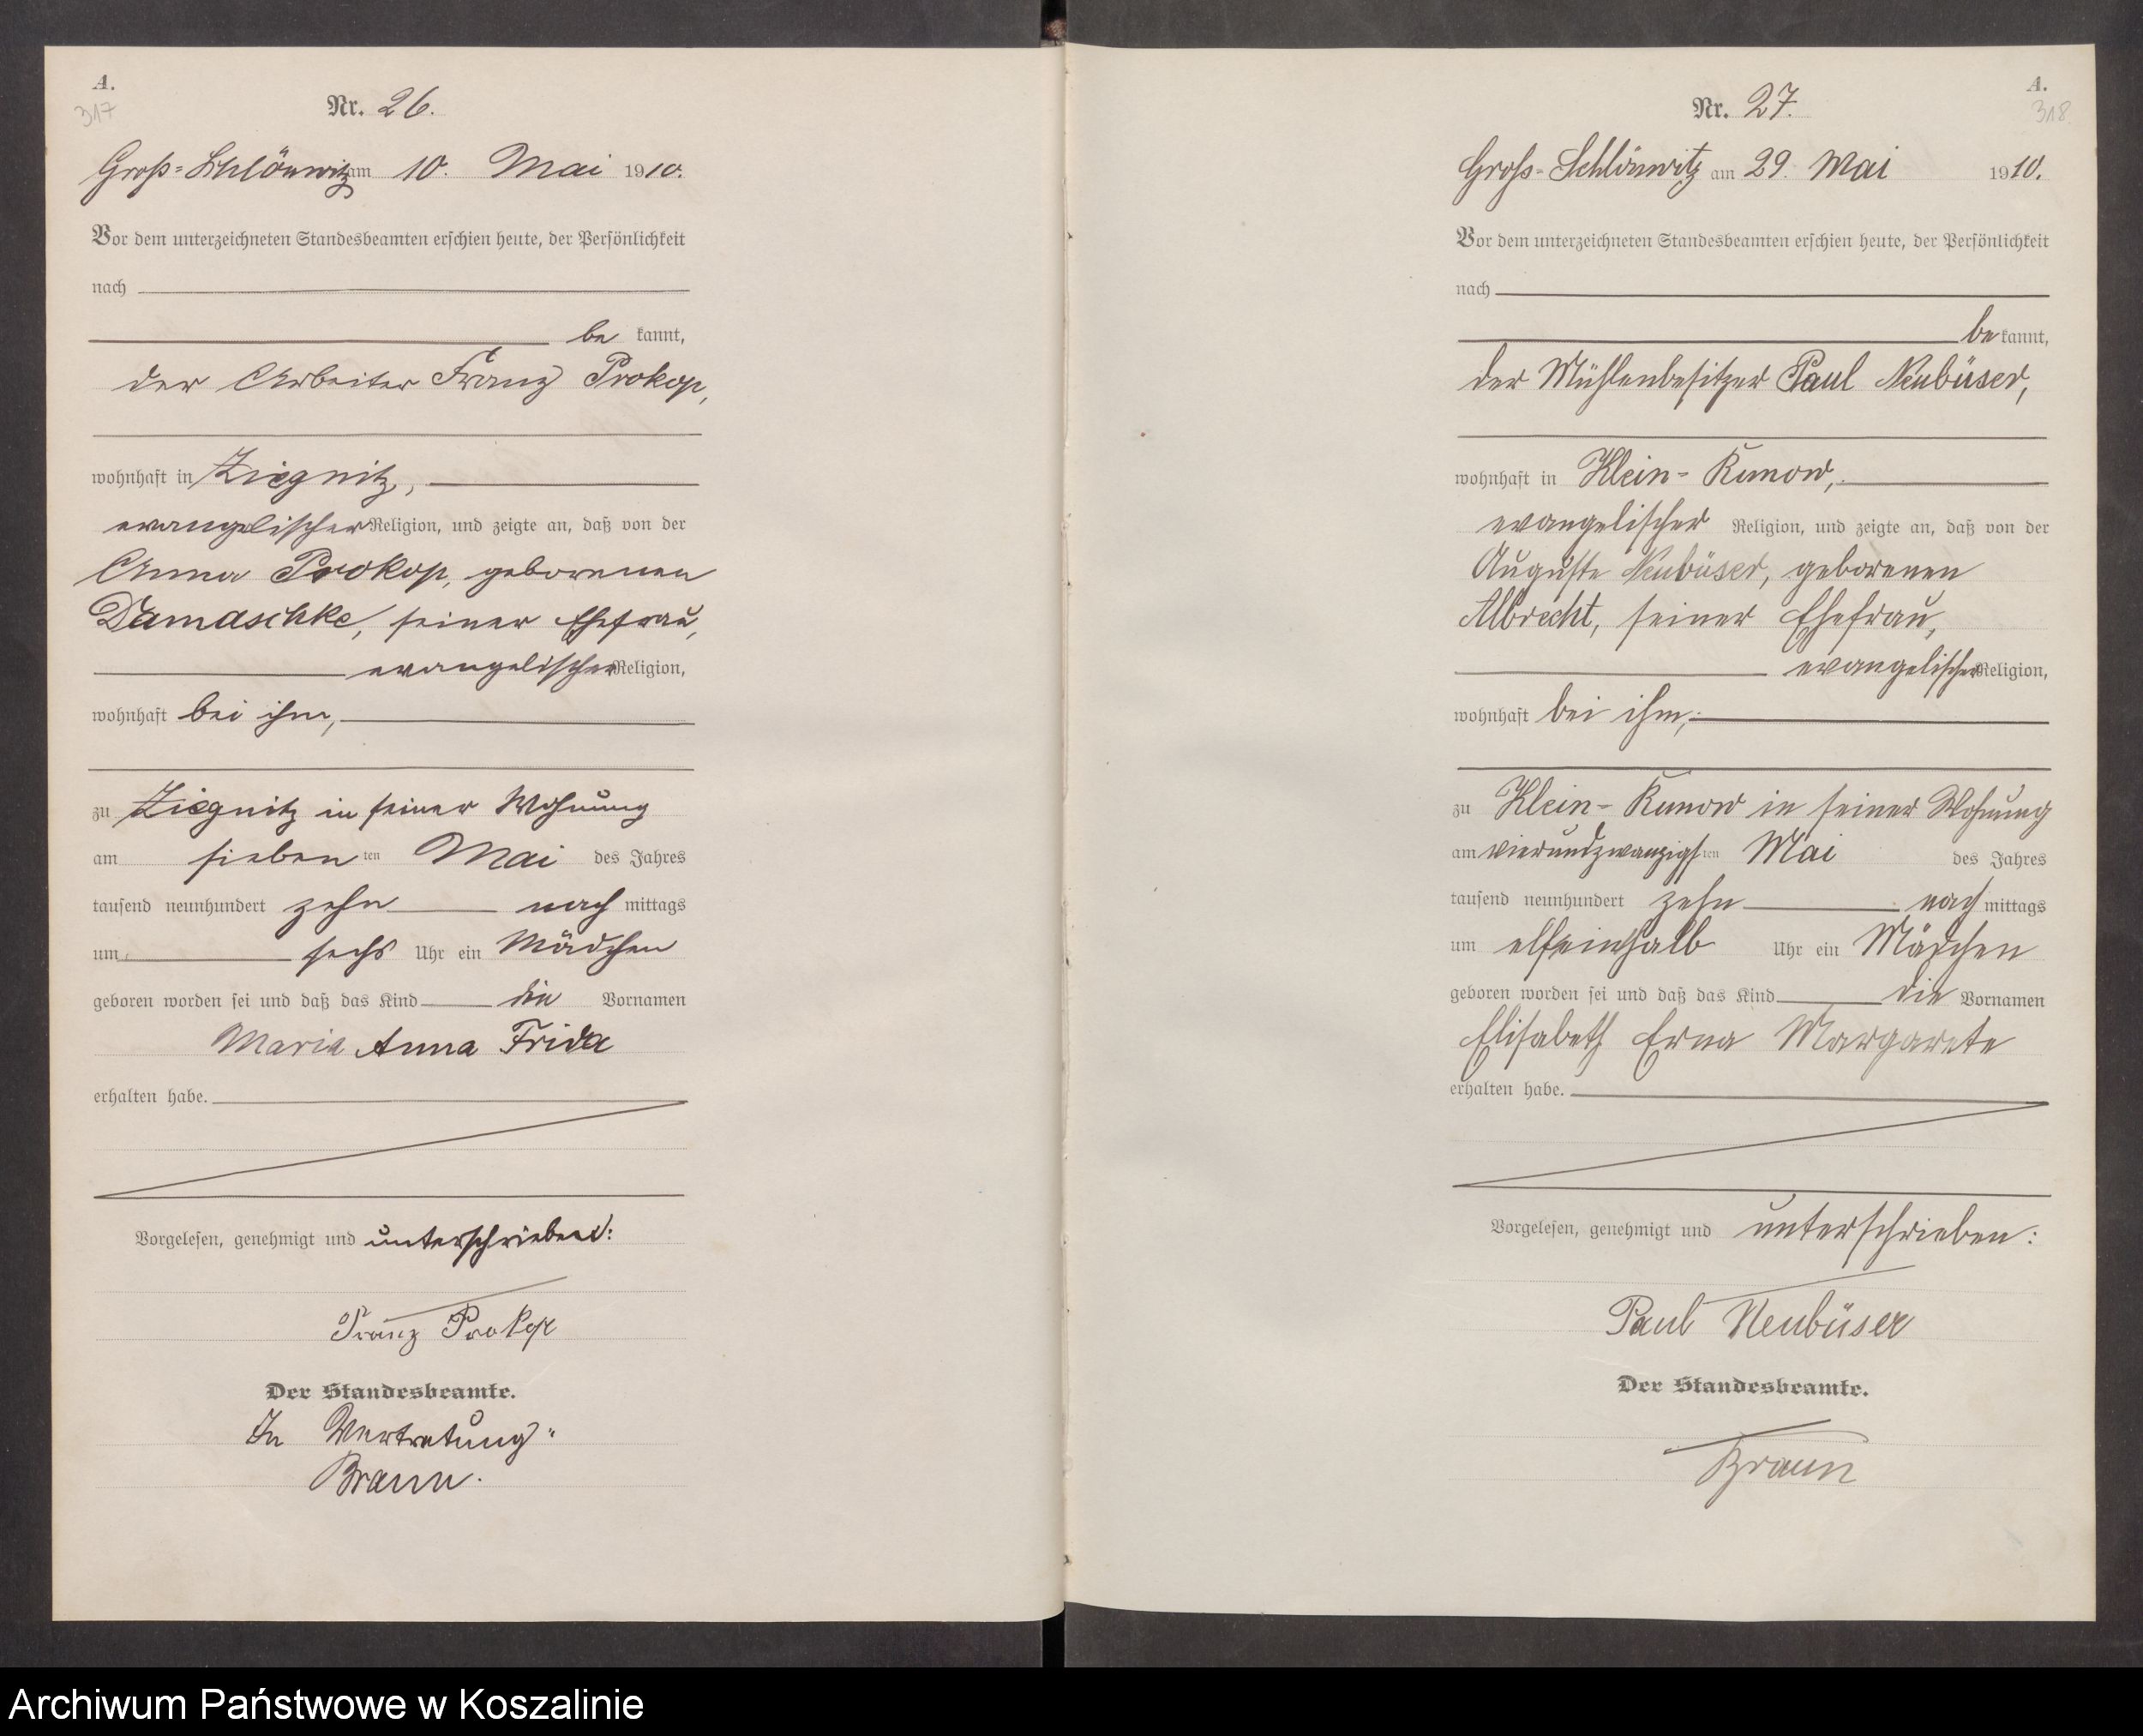 A.
317
Nr. 26.
Groß-Schlönwitz am 10. Mai 1910.
Vor dem unterzeichneten Standesbeamten erschien heute, der Persönlichkeit
nach
be kannt,
der Arbeiter Franz Prokop,
wohnhaft in Ziegnitz,
evangelischer Religion, und zeigte an, daß von der
Anna Prokop, geborenen
Damaschke, seiner Ehefrau,
evangelischer Religion,
wohnhaft bei ihm,
zu Ziegnitz in seiner Wohnung
am sieben ten Mai des Jahres
tausend neunhundert zehn nach mittags
um sechs Uhr ein Mädchen
geboren worden sei und daß das Kind die Vornamen
Maria Anna Frida
erhalten habe.
Vorgelesen, genehmigt und unterschrieben:
Franz Prokop
Der Standesbeamte.
In Vertretung:
Braun.
A.
318
Nr. 27.
Groß-Schlönwitz am 29. Mai 1910.
Vor dem unterzeichneten Standesbeamten erschien heute, der Persönlichkeit
nach
be kannt,
der Mühlenbesitzer Paul Neubüser,
wohnhaft in Klein-Runow,
evangelischer Religion, und zeigte an, daß von der
Auguste Neubüser, geborenen
Albrecht, seiner Ehefrau,
evangelischer Religion,
wohnhaft bei ihm,
zu Klein-Runow in seiner Wohnung
am vierundzwanzigs ten Mai des Jahres
tausend neunhundert zehn nach mittags
um elfeinhalb Uhr ein Mädchen
geboren worden sei und daß das Kind die Vornamen
Elisabeth Erna Margarete
erhalten habe.
Vorgelesen, genehmigt und unterschrieben:
Paul Neubüser
Der Standesbeamte.
Braun
Archiwum Państwowe w Koszalinie